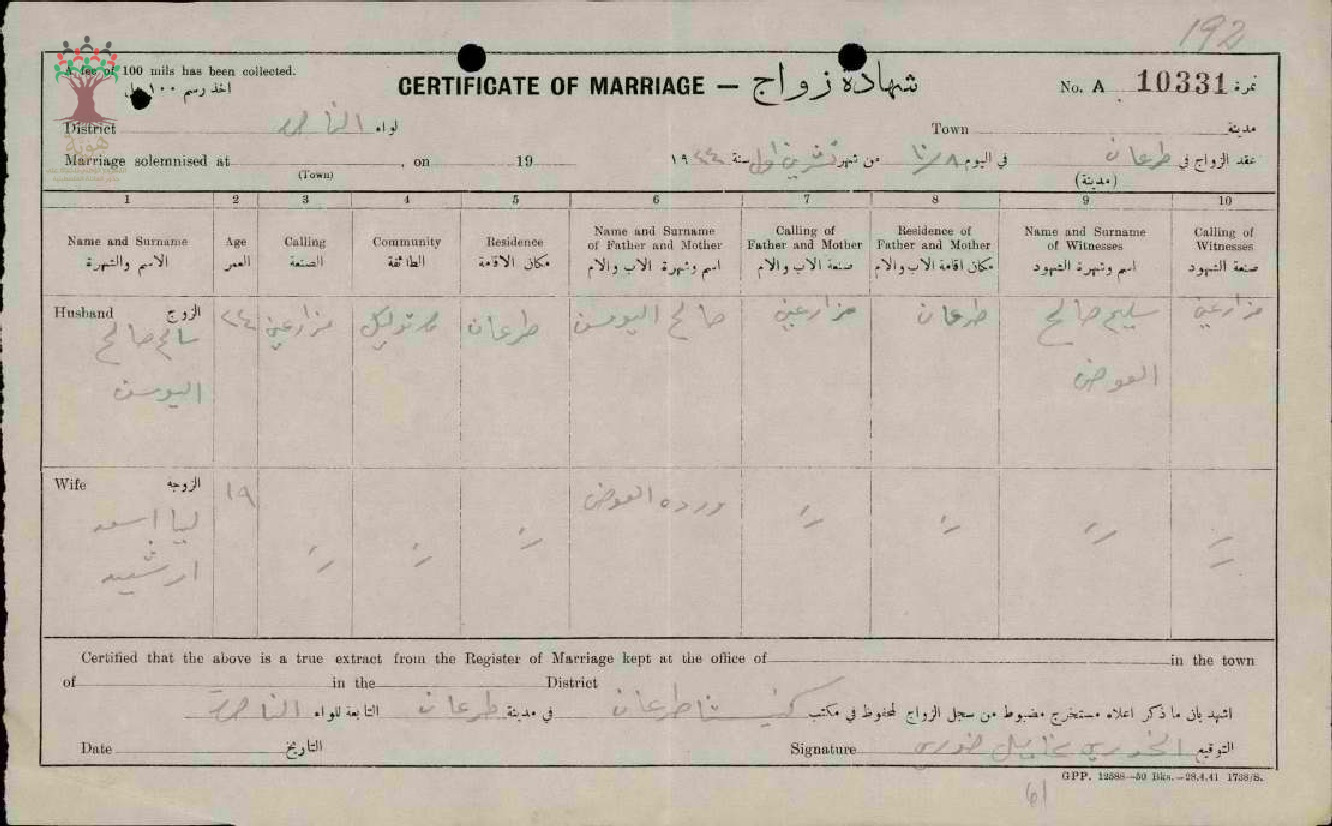 192
A fee of 100 mils has been collected.
اخذ رسم ١٠٠ مل
CERTIFICATE OF MARRIAGE — شهادة زواج
No. A 10331 نمرة
District الناصرة لواء
Town مدينة
Marriage solemnised at , on 19
(Town)
عقد الزواج في طرعان في اليوم من شهر تشرين اول سنة ١٩٤٤
(مدينة)
هوية
1 2 3 4 5 6 7 8 9 10
Name and Surname Age Calling Community Residence Name and Surname of Father and Mother Calling of Father and Mother Residence of Father and Mother Name and Surname of Witnesses Calling of Witnesses
الاسم والشهرة العمر الصنعة الطائفة مكان الاقامة اسم وشهرة الاب والام صنعة الاب والام مكان اقامة الاب والام اسم وشهرة الشهود صنعة الشهود
Husband الزوج
سالم صالح ٢٤ مزارعين طرعان صالح اليوسف مزارعين طرعان سليم صالح مزارعين
اليوسف العوض
Wife الزوجه
١٩ ورده العوض
ليا اسعد
ارشيد
Certified that the above is a true extract from the Register of Marriage kept at the office of in the town
of in the District
اشهد بان ما ذكر اعلاه مستخرج مضبوط من سجل الزواج المحفوظ في مكتب طرعان في مدينة طرعان التابعة للواء الناصرة
Date التاريخ
Signature الخوري خوري التوقيع
GPP. 12588—50 Bks.—28.4.41 1738/S.
61